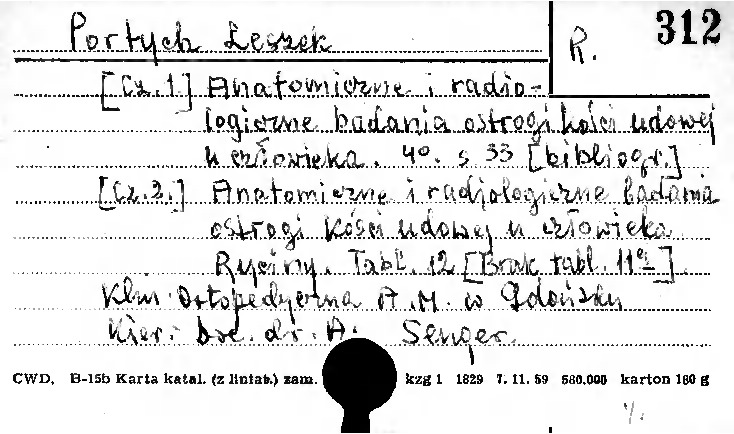 Portych Leszek
R. 312
[Cz. 1.] Anatomiczne i radio-
logiczne badania ostrogi kości udowej
u człowieka. 4°. s 33 [bibliogr.]
[Cz. 2.] Anatomiczne i radiologiczne badania
ostrogi kości udowej u człowieka
Ryciny. Tabl. 12 [Brak tabl. 11ej]
Klin. Ortopedyczna A.M. w Gdańsku
Kier: Doc. dr. A. Senger.
CWD, B-15b Karta katal. (z liniat.) zam. kzg 1 1829 7. 11. 59 580.000 karton 160 g